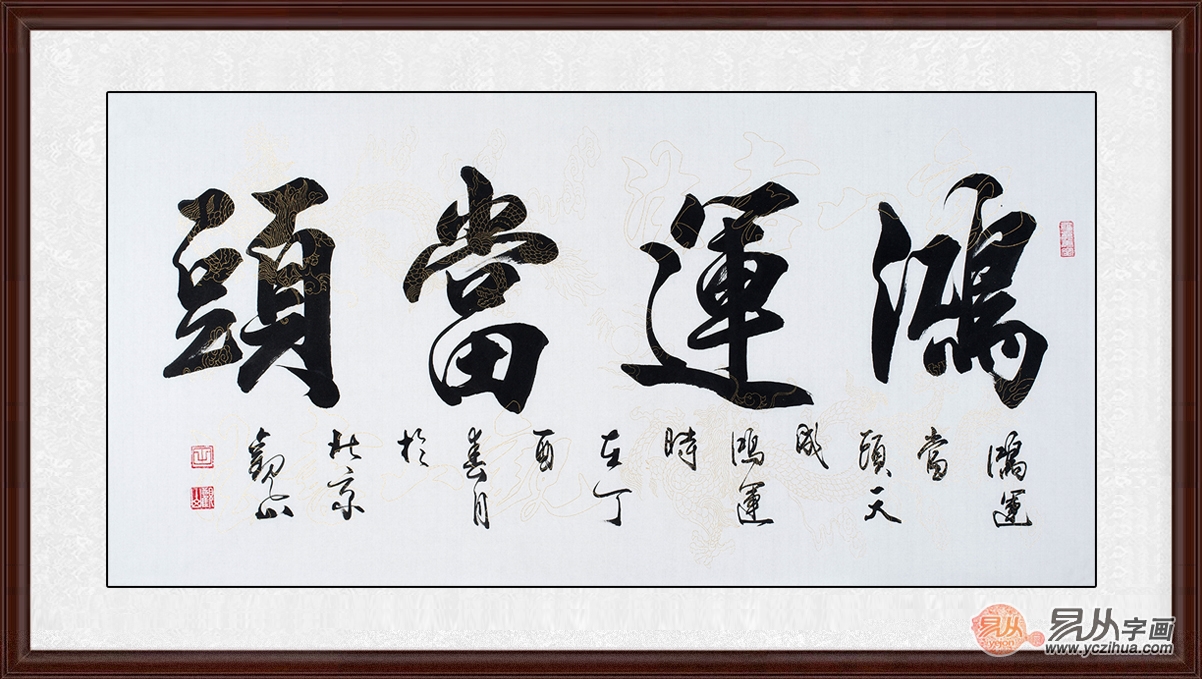 鴻運當頭
鴻運
當
頭天
成
鴻運
時
在丁
酉
春月
於
北京
觀山
易从
易从字画
www.yczihua.com